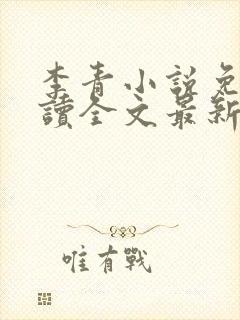 李青小說免
讀全文最新
唯有戰